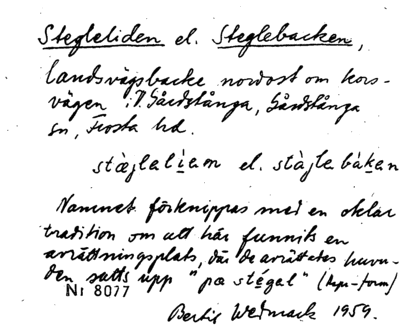 Stegleliden el. Steglebacken,
landsvägsbacke nordost om kors-
vägen i V. Gårdstånga, Gårdstånga
sn, Frosta hd.
stæ̀glaliem el. stàgle bàkan
Namnet förknippas med en oklar
tradition om att här funnits en
avrättningsplats, där de avrättades huvu-
den satts upp "pæ stégel" (sups-form)
Nr 8077
Bertil Wedmark 1959.